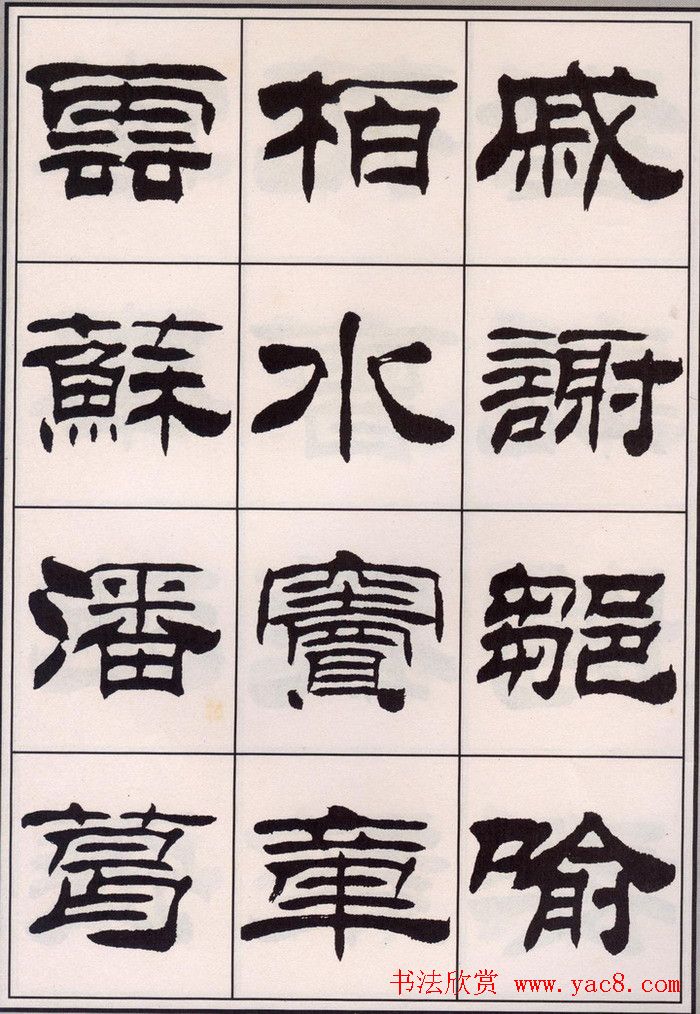 戚謝鄒喻
柏水竇章
雲蘇潘葛
书法欣赏 www.yac8.com